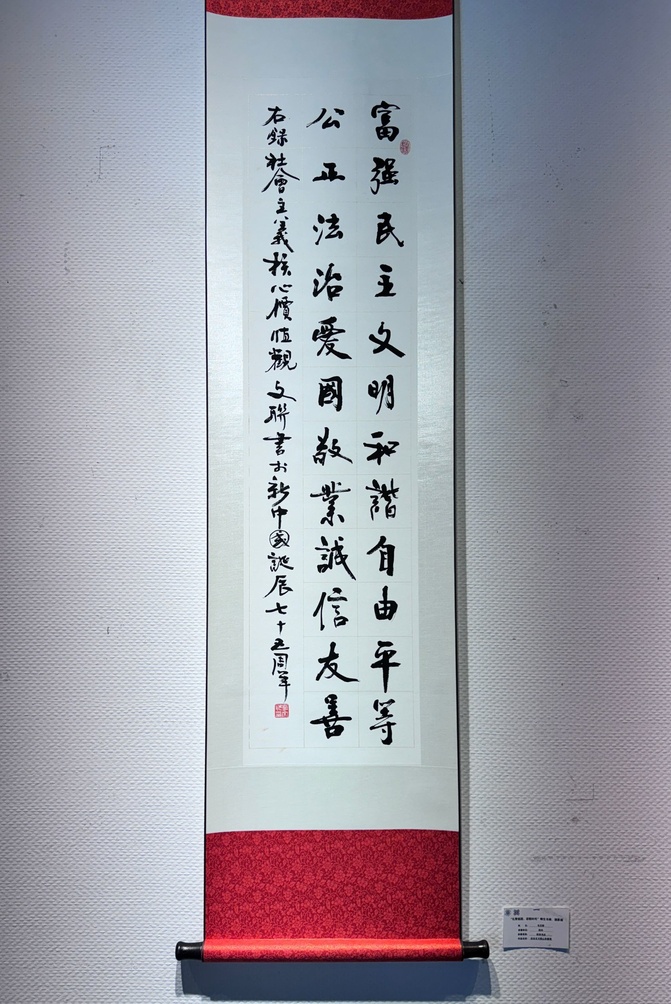 富强民主文明和諧自由平等
公正法治愛國敬業誠信友善
右錄社會主義核心價值觀文聯書於新中國誕辰七十五周年